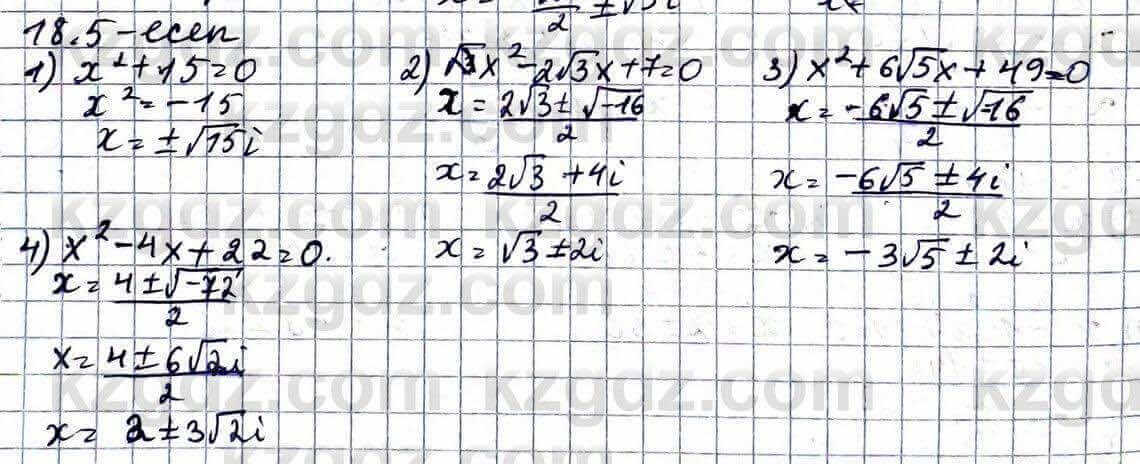 18.5-есеп
1) x² + 15 = 0
x² = -15
x = ±√15i
2) √3x² - 2√3x + 7 = 0
x = 2√3 ± √-16 / 2
x = 2√3 + 4i / 2
x = √3 ± 2i
3) x² + 6√5x + 49 = 0
x = -6√5 ± √-16 / 2
x = -6√5 ± 4i / 2
x = -3√5 ± 2i
4) x² - 4x + 22 = 0.
x = 4 ± √-72 / 2
x = 4 ± 6√2i / 2
x = 2 ± 3√2i
kzgdz.com